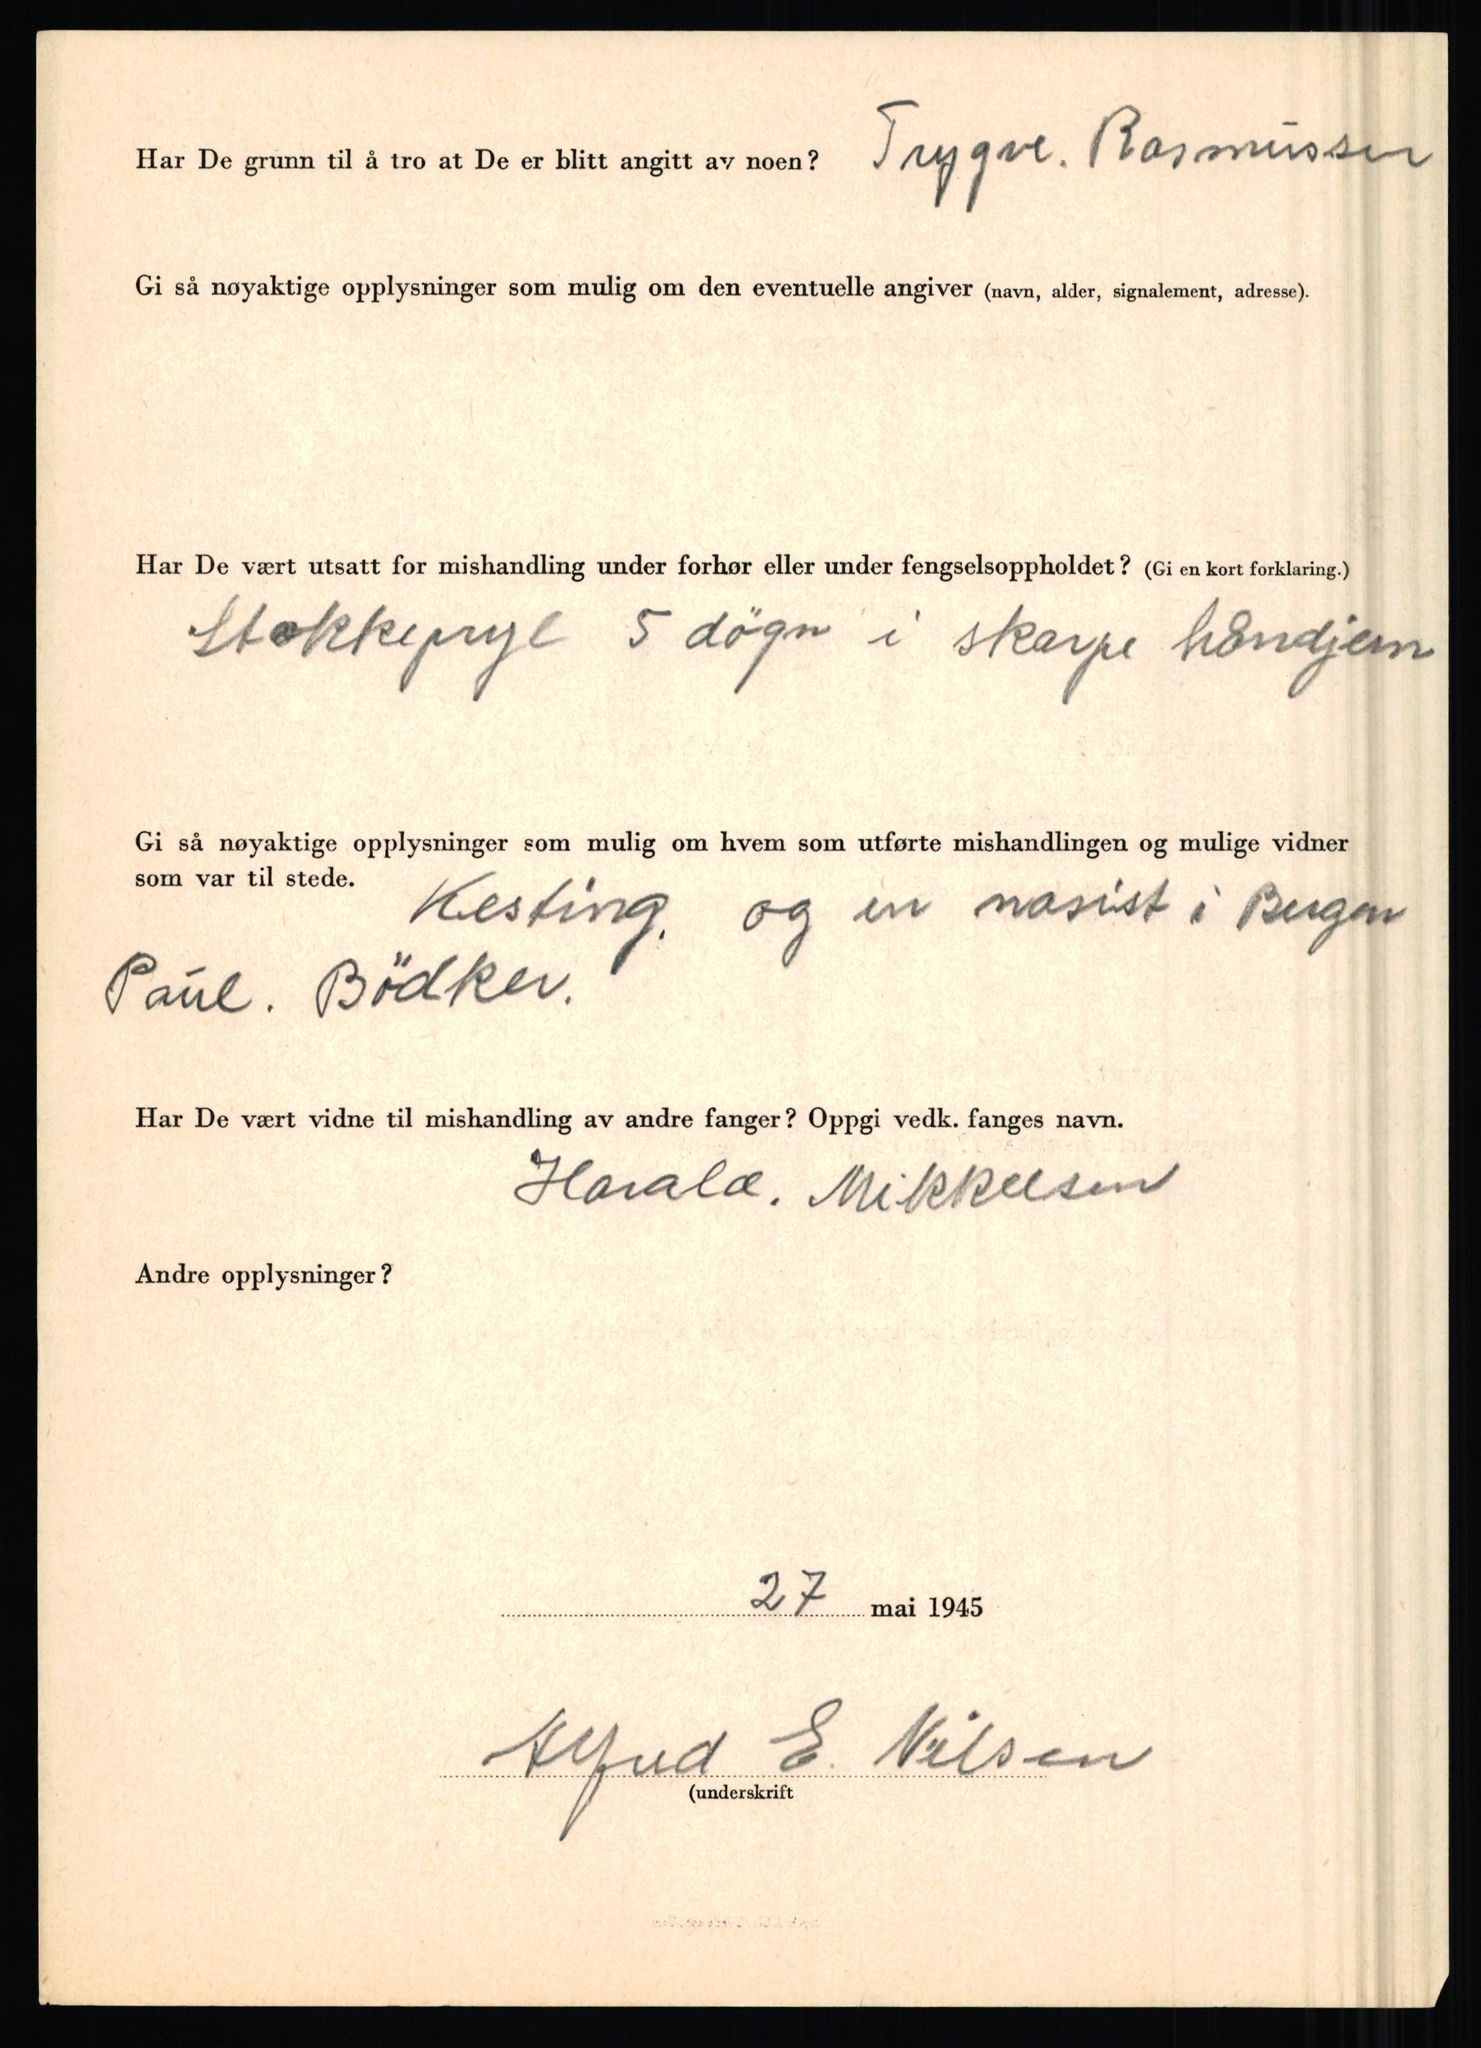 Har De grunn til å tro at De er blitt angitt av noen? Trygve. Rasmussen
Gi så nøyaktige opplysninger som mulig om den eventuelle angiver (navn, alder, signalement, adresse).
Har De vært utsatt for mishandling under forhør eller under fengselsoppholdet? (Gi en kort forklaring.)
Stokkepryl 5 døgn i skarpe håndjern
Gi så nøyaktige opplysninger som mulig om hvem som utførte mishandlingen og mulige vidner
som var til stede. Kesting. og en nasist i Bergen
Paul. Bödker.
Har De vært vidne til mishandling av andre fanger? Oppgi vedk. fanges navn.
Harald. Mikkelsen
Andre opplysninger?
27 mai 1945
Alfred E. Nilsen
(underskrift